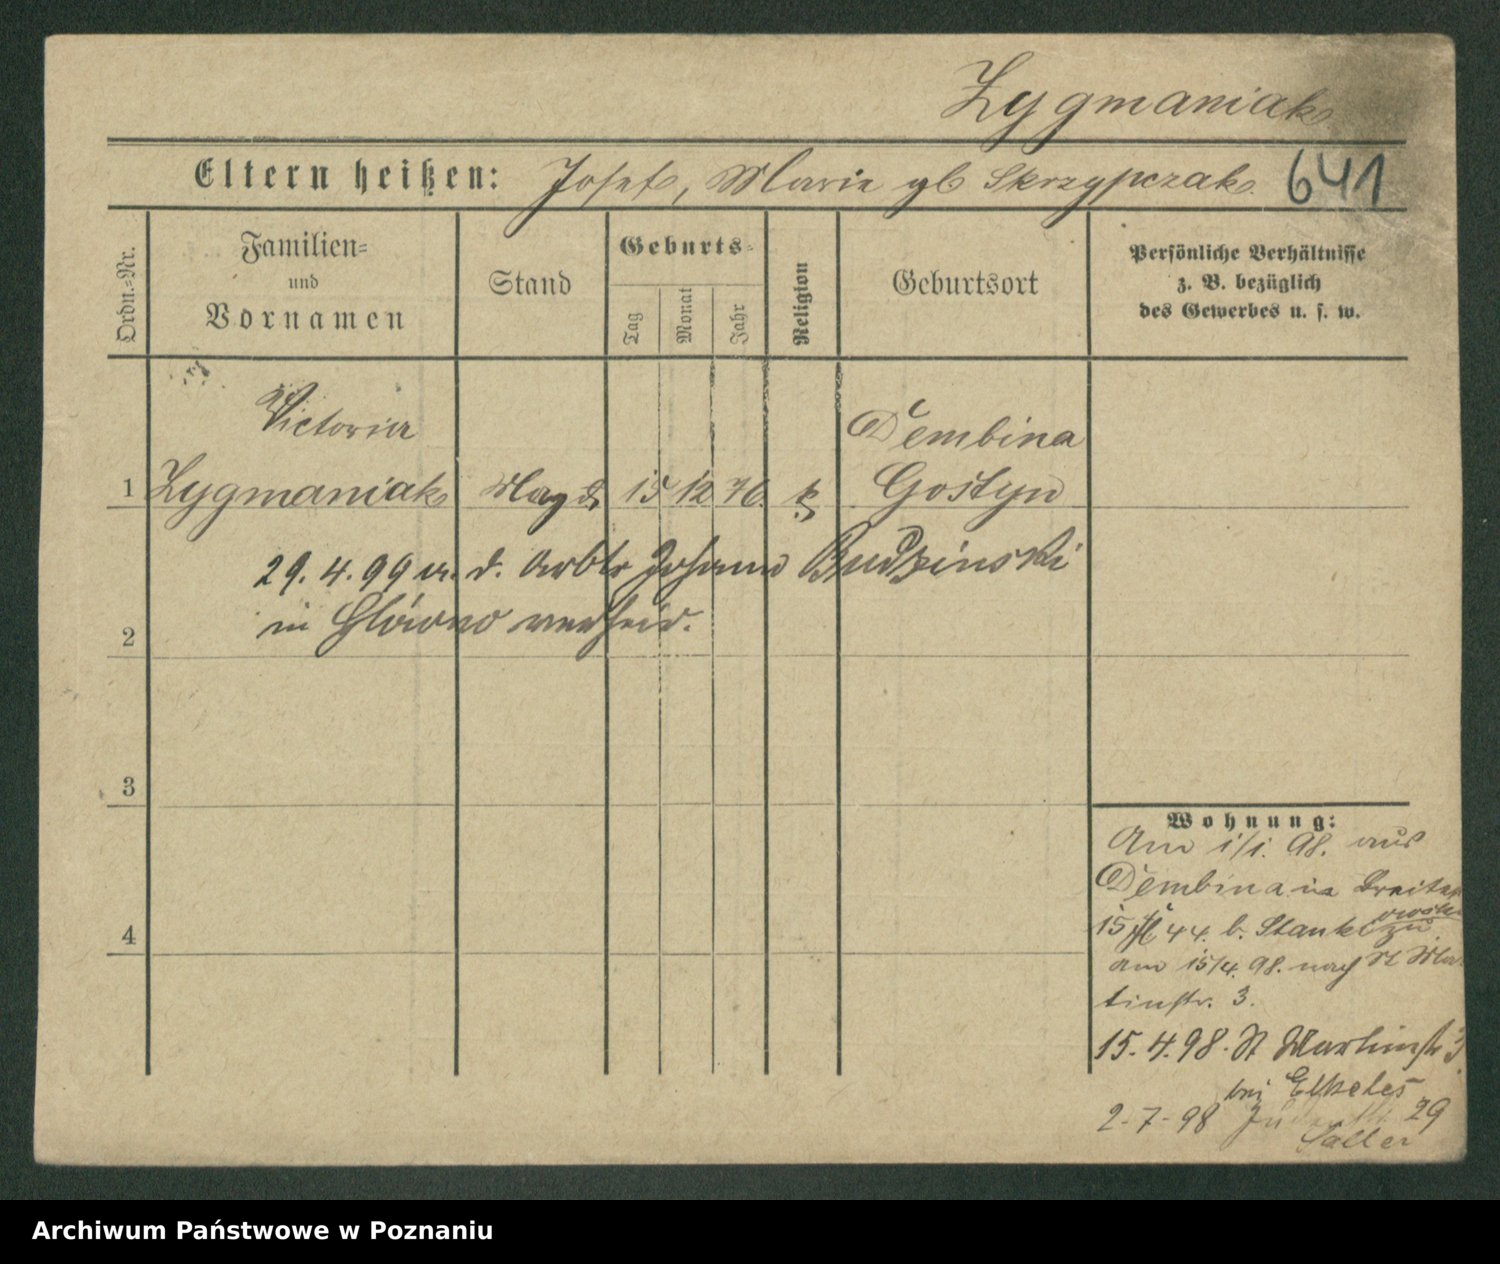 Zygmaniak
Eltern heißen: Josef, Marie gb Skrzypczak. 641
Ordn.-Nr.
Familien-
und
Vornamen
Stand
Geburts-
Tag
Monat
Jahr
Religion
Geburtsort
Persönliche Verhältnisse
z. B. bezüglich
des Gewerbes u. s. w.
Victoria Dembina
1 Zygmaniak Magd 15 12 76. k Gostyn
29. 4. 99 m. d. Arbtr Johann Budzinski
in Główno verheir.
2
3
4
Wohnung:
Am 1/1. 98. aus
Dembina in Breite
15 44. b. Stankowski zu
am 15/4. 98. nach St Mar
tinstr. 3.
15. 4. 98. St Martinstr 3
bei Elkeles
2-7-98 29
Saller
Archiwum Państwowe w Poznaniu